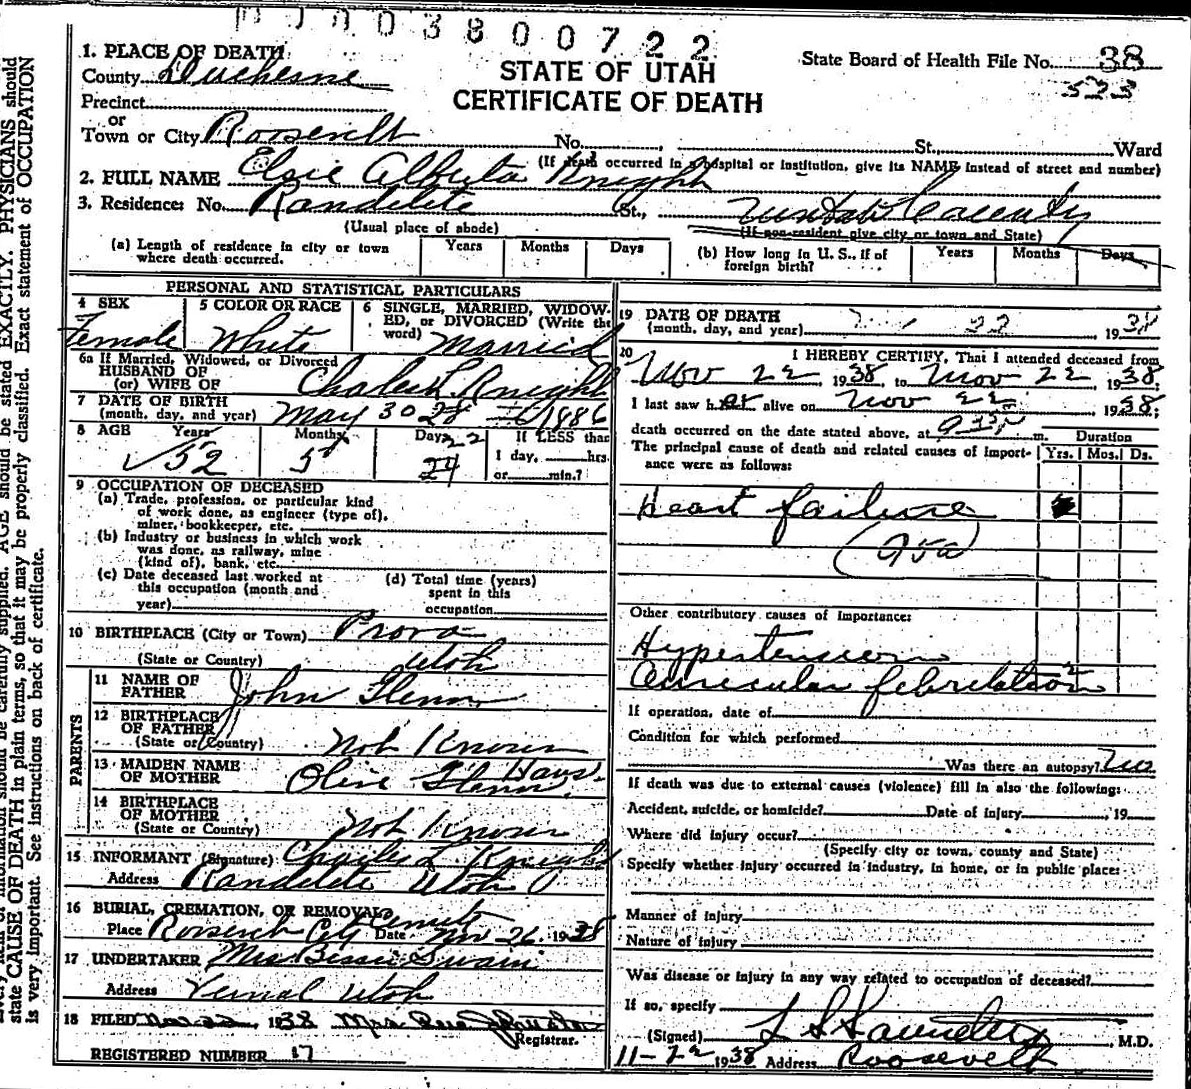 003800722
1. PLACE OF DEATH
County Duchesne
Precinct
or
Town or City Roosevelt No. , St., Ward
STATE OF UTAH
CERTIFICATE OF DEATH
State Board of Health File No. 38
523
(If death occurred in a hospital or institution, give its NAME instead of street and number)
2. FULL NAME Elsie Alberta Knight
3. Residence: No. Randelete St., Uintah County
(Usual place of abode) (If non-resident give city or town and State)
(a) Length of residence in city or town where death occurred. Years Months Days
(b) How long in U. S., if of foreign birth? Years Months Days
PERSONAL AND STATISTICAL PARTICULARS
4 SEX Female
5 COLOR OR RACE White
6 SINGLE, MARRIED, WIDOWED, or DIVORCED (Write the word) Married
6a If Married, Widowed, or Divorced
HUSBAND OF
(or) WIFE OF Charles L. Knight
7 DATE OF BIRTH
(month, day, and year) May 30 28 1886
8 AGE Years Months Days If LESS than
52 5 24 22 1 day, hrs.
or min.?
9 OCCUPATION OF DECEASED
(a) Trade, profession, or particular kind
of work done, as engineer (type of),
miner, bookkeeper, etc.
(b) Industry or business in which work
was done, as railway, mine
(kind of), bank, etc.
(c) Date deceased last worked at
this occupation (month and
year)
(d) Total time (years)
spent in this
occupation
10 BIRTHPLACE (City or Town) Provo
(State or Country) Utah
PARENTS
11 NAME OF
FATHER John Glenn
12 BIRTHPLACE
OF FATHER
(State or Country) Not Known
13 MAIDEN NAME
OF MOTHER Olive Glenn Haws.
14 BIRTHPLACE
OF MOTHER
(State or Country) Not Known
15 INFORMANT (Signature) Charles L Knight
Address Randelete Utah
16 BURIAL, CREMATION, OR REMOVAL
Place Roosevelt City Cemetery Date Nov 26. 1938
17 UNDERTAKER Mrs Bessie Swain
Address Vernal Utah
18 FILED 1938 Mrs
Registrar.
REGISTERED NUMBER 17
19 DATE OF DEATH
(month, day, and year) 22 1938
20 I HEREBY CERTIFY, That I attended deceased from
Nov 22, 1938, to Nov 22, 1938;
I last saw her alive on Nov 22, 1938;
death occurred on the date stated above, at m.
The principal cause of death and related causes of importance were as follows:
Duration
Yrs. Mos. Ds.
Heart failure
(95a)
Other contributory causes of importance:
Hypertension
Auricular febrilation
If operation, date of
Condition for which performed
Was there an autopsy? No
If death was due to external causes (violence) fill in also the following:
Accident, suicide, or homicide? Date of injury , 19
Where did injury occur?
(Specify city or town, county and State)
Specify whether injury occurred in industry, in home, or in public place:
Manner of injury
Nature of injury
Was disease or injury in any way related to occupation of deceased?
If so, specify
(Signed) L S Saunders, M.D.
11-22 1938 Address Roosevelt
state CAUSE OF DEATH in plain terms, so that it may be properly classified. Exact statement of OCCUPATION
is very important. See instructions on back of certificate.